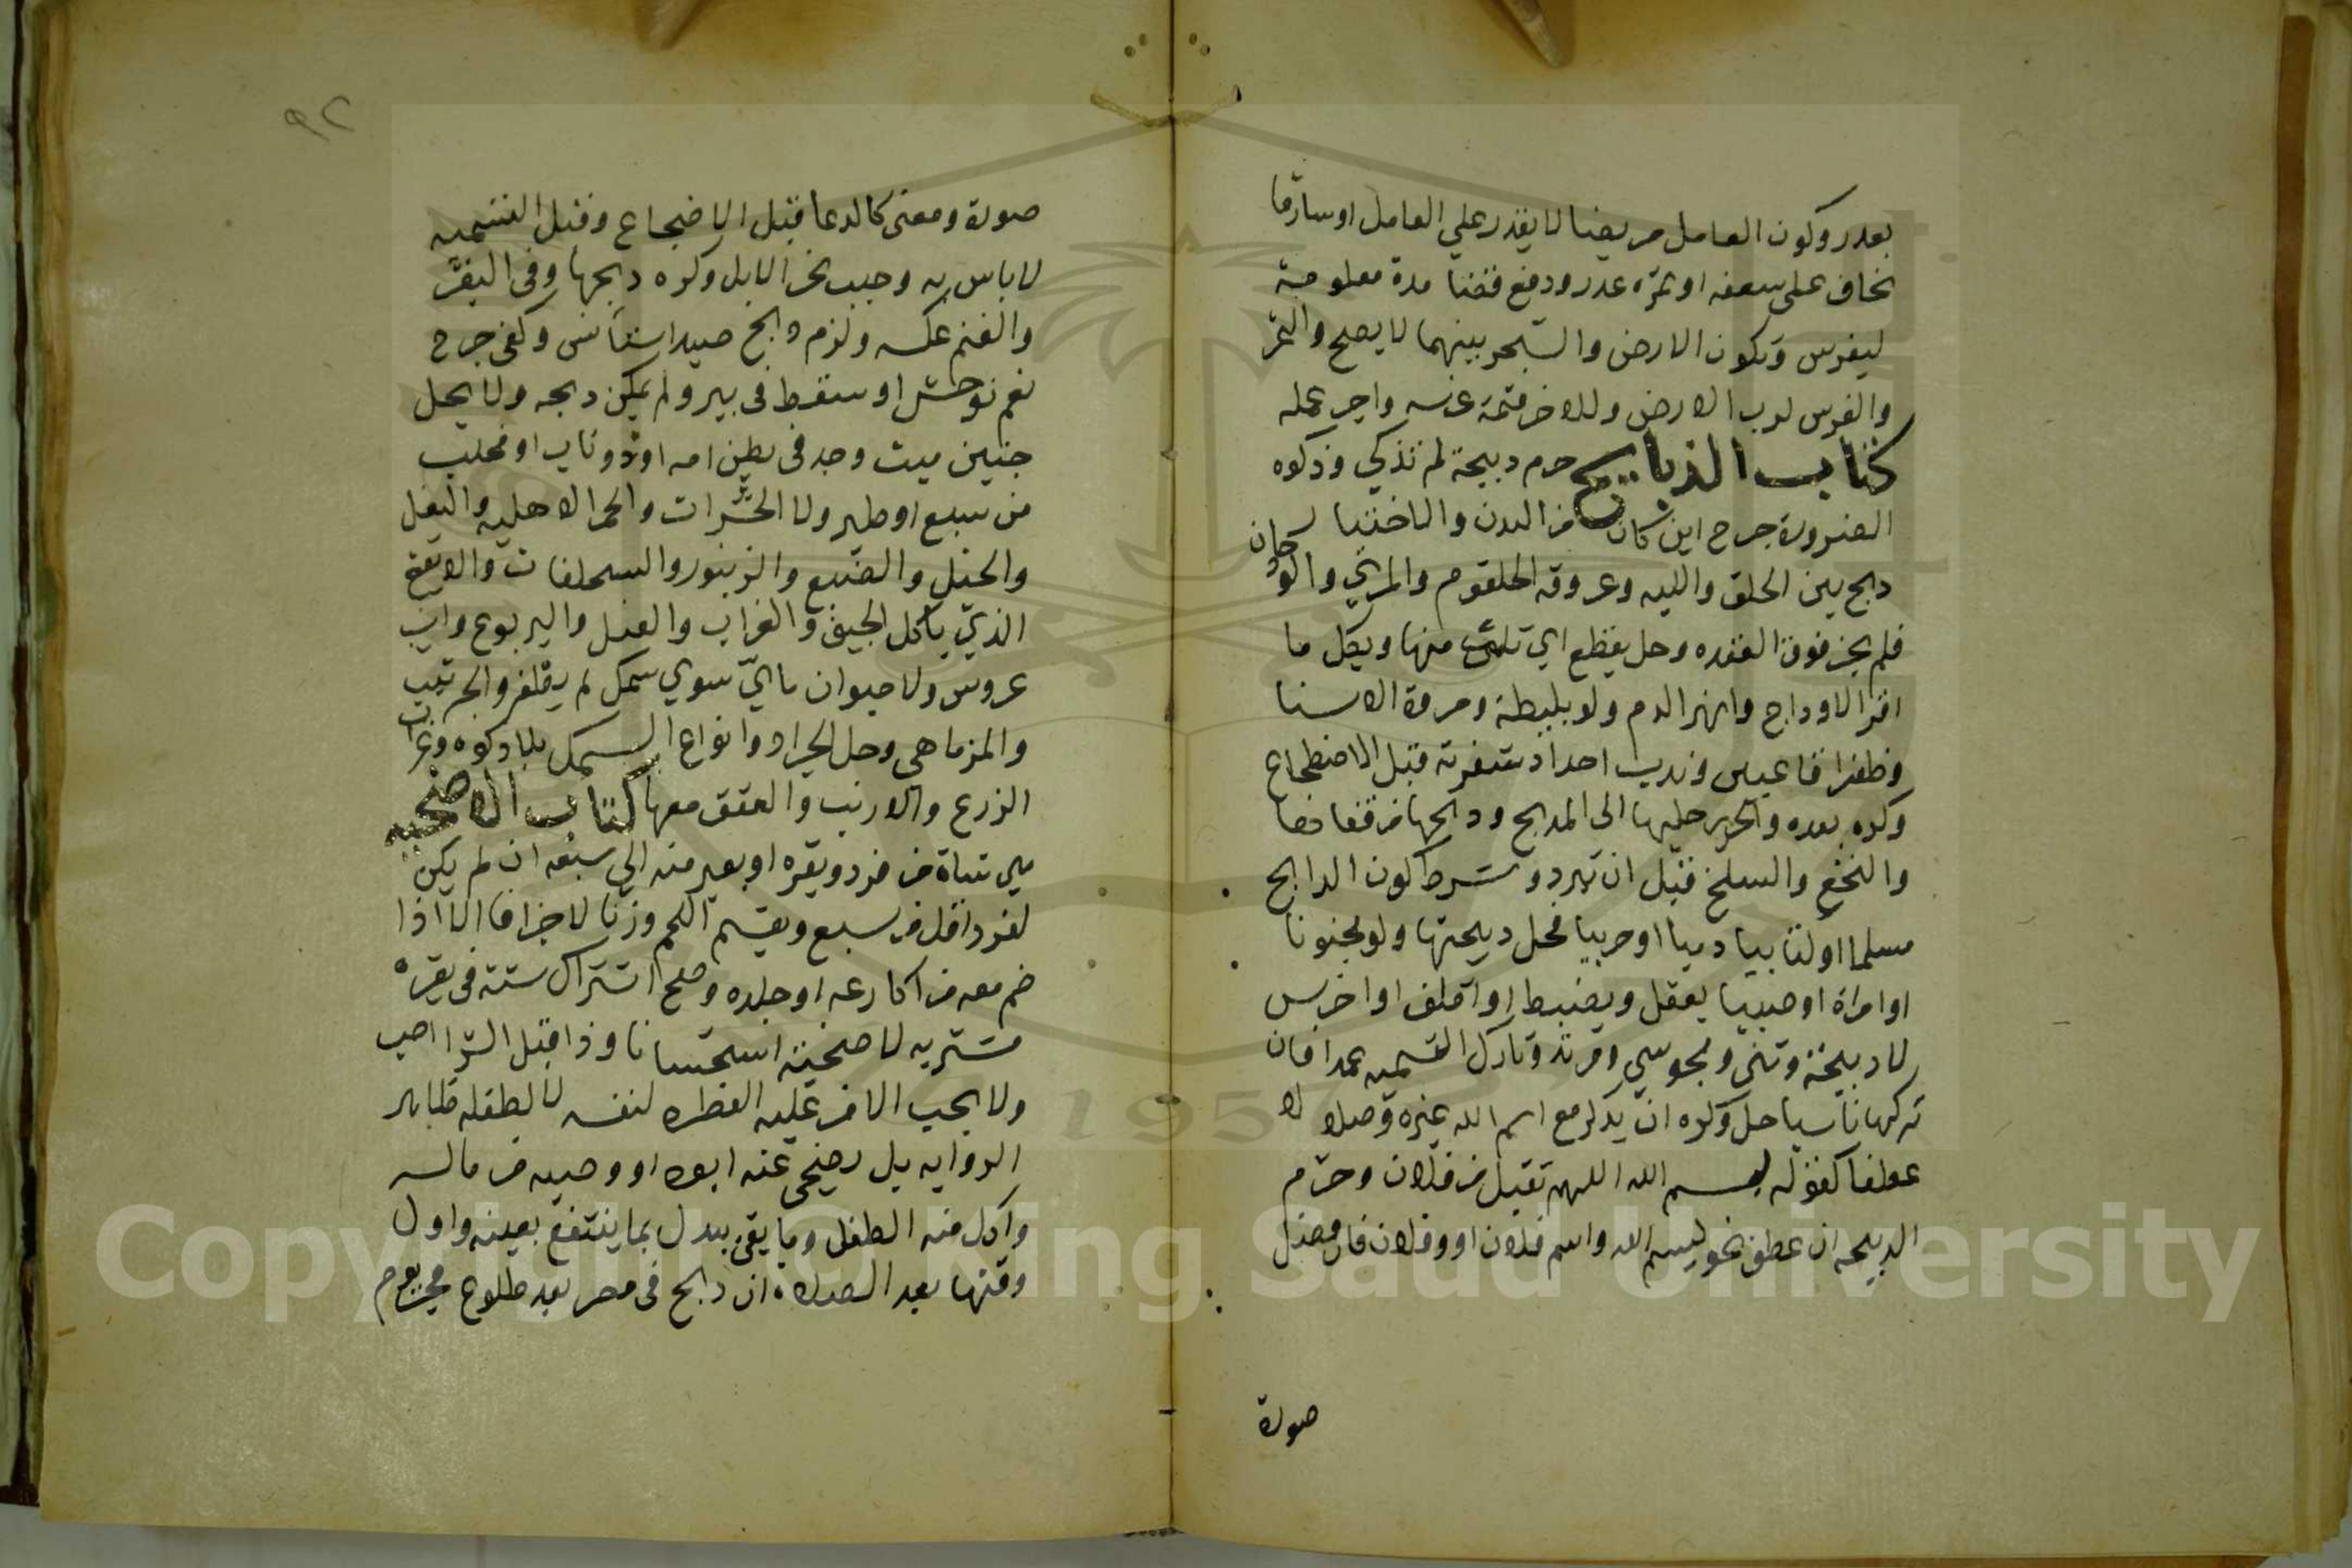 بعدر وكون العامل مريضا لا يقدر علي العامل او سارقا
يخاف على سعفه او ثمره عدر ودفع فضا مدة معلومة
ليغرس وتكون الارض والشجر بينهما لا يصح والثمر
والغرس لرب الارض وللاخر قيمة غرسه واجر عمله
كتاب الذبايح حرم دبيحة لم تذكي وذكوه
الضرورة جرح اين كان من البدن والاختيار
دبح بين الحلق واللبه وعروقه الحلقوم والمري والودجان
فلم يجز فوق العقده وحل بقطع اي ثلث منها وبكل ما
افرا الاوداج وانهر الدم ولو بليطة ومروة الا سنا
وظفرا قايمين وندب احداد شفرته قبل الاضطجاع
وكره بعده والجر برجليها الى المدبح ودبحها من قفاها
والنخع والسلخ قبل ان تبرد وشرط كون الدابح
مسلما او كتابيا دميا او حربيا فحل دبيحتها ولو مجنونا
او امراة او صبيا يعقل ويضبط او اقلف او اخرس
لا دبيحة وثني ومجوسي ومرتد وتارك التسميه عمدا فان
تركها ناسيا حل وكره ان يذكر مع اسم الله غيره وصلا لا
عطفا كقوله بسم الله اللهم تقبل من فلان وحرم
الدبيحه ان عطف نحو بسم الله واسم فلان او وفلان فان فصل
صورة
٩٢
صورة ومعنى كالدعا قبل الاضجاع وقبل التسميه
لا باس به وحبب نحر الابل وكره دبحها وفى البقر
والغنم عكسه ولزم دبح صيد استانس وكفى جرح
نعم توحش او سقط فى بير ولم يمكن دبحه ولا يحل
جنين ميت وجد فى بطن امه او ذو ناب او مخلب
من سبع او طير ولا الحشرات والحمر الاهليه والبغل
والخيل والضبع والزنبور والسحلفات والابقع
الذي ياكل الجيف والغراب والفيل واليربوع وابن
عروس ولا حيوان مايي سوي سمك لم يطف والجريث
والمزماهي وحل الجراد وانواع السمك بلا دكوه وغراب
الزرع والارنب والعقق معها كتاب الاضحيه
هي شاة من فرد وبقره او بعير منه الي سبعه ان لم يكن
لفرد اقل من سبع ويقسم اللحم وزنا لا جزافا الا اذا
ضم معه من اكارعه او جلده وصح اشتراك ستة فى بقرة
مشتريه لاضحية استحسانا وذا قبل الشرا احب
ولا يجب الا من عليه الفطره لنفسه لا لطفله ظاهر
الروايه بل يضحى عنه ابوه او وصيه من ماله
واكل منه الطفل وما بقي يبدل بما ينتفع بعينه واول
وقتها بعد الصلاة ان دبح فى مصر بعد طلوع فجر يوم
Copyright © King Saud University
1957